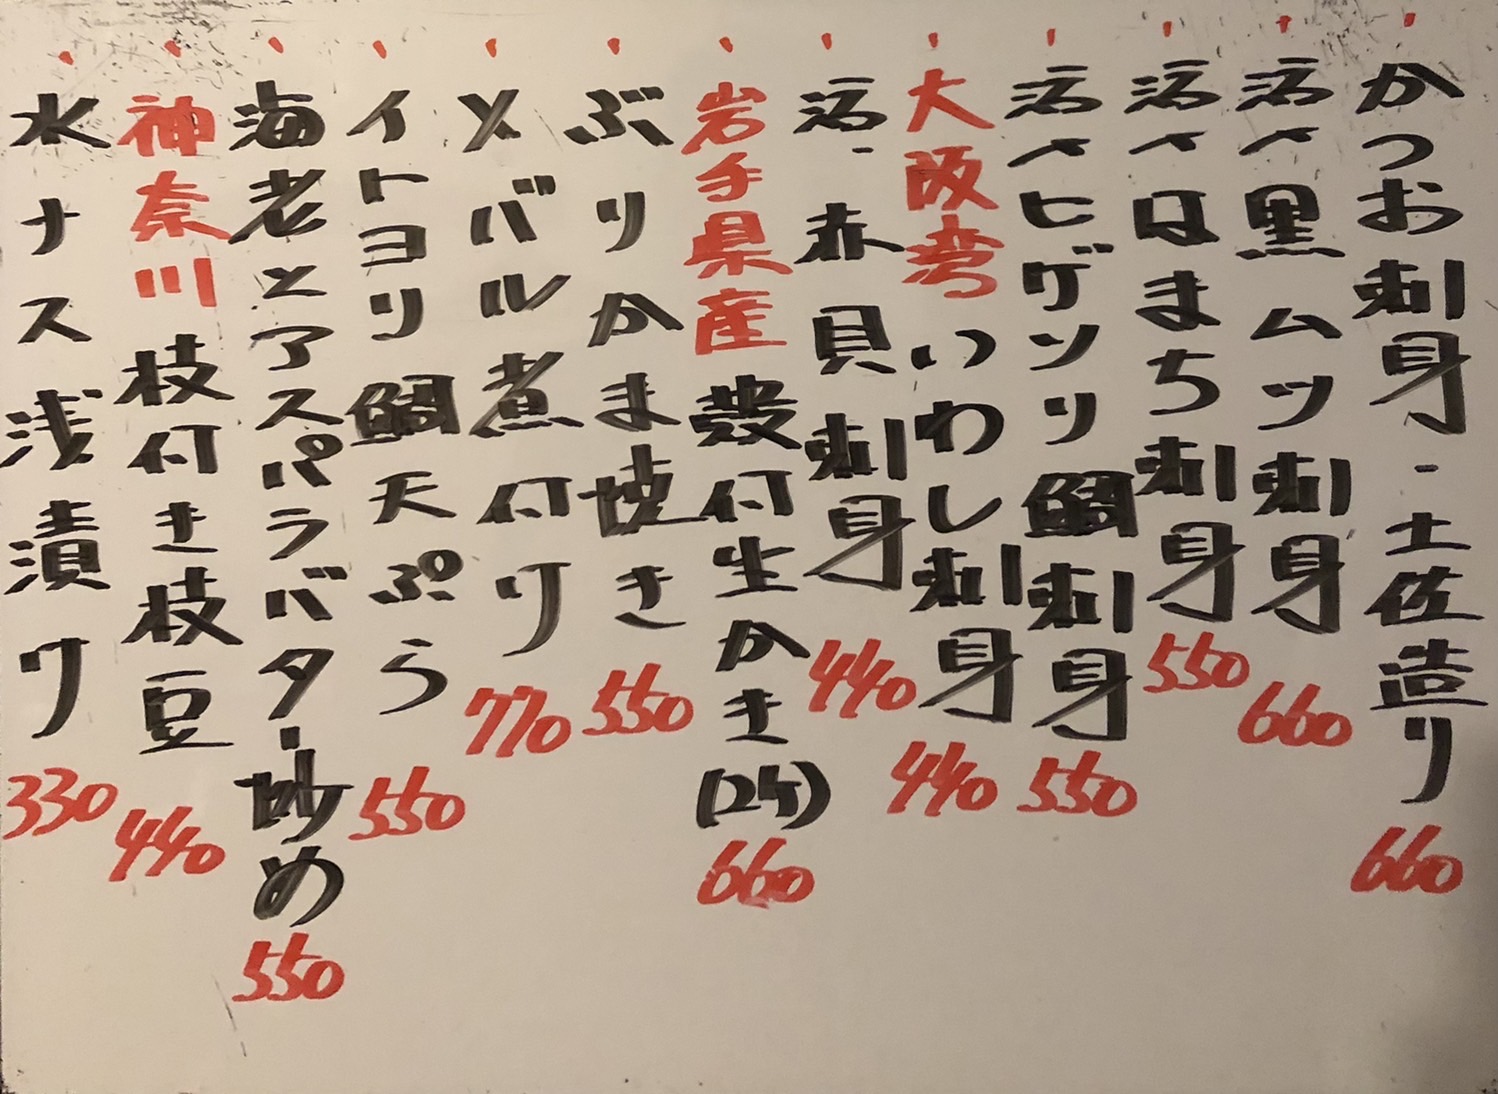 かつお刺身・土佐造り 660
活〆黒ムツ刺身 660
活〆はまち刺身 550
活〆ヒゲソリ鯛刺身 550
大阪湾いわし刺身 440
活・赤貝刺身 440
岩手県産殻付生かき(2ケ) 660
ぶりかま焼き 550
メバル煮付け 770
イトヨリ鯛天ぷら 550
海老とアスパラバター炒め 550
神奈川枝付き枝豆 440
水ナス浅漬け 330